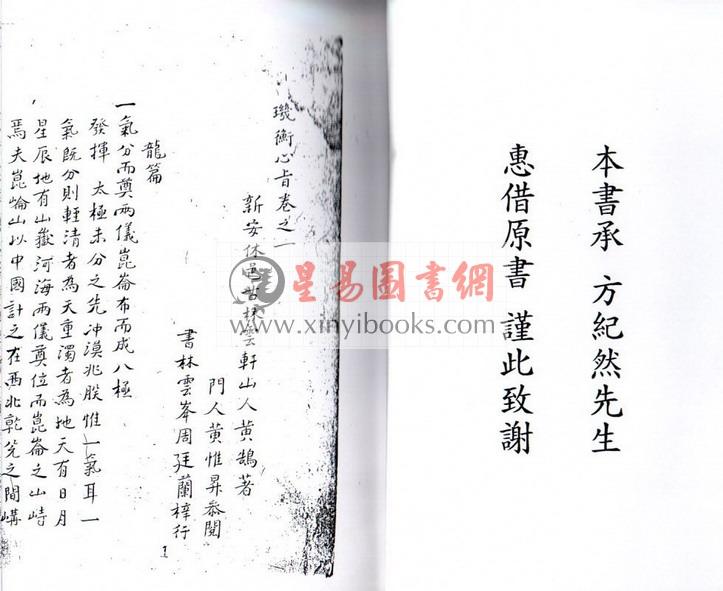 本書承 方紀然先生
惠借原書 謹此致謝
璣衡心旨卷之一
新安休邑雲軒山人黄鵠著
門人黄惟昇忝閱
書林雲峯周廷蘭梓行
龍篇
一氣分而奠兩儀崑崙布而成八極
發揮 太極未分之先冲漠兆朕惟一氣耳一
氣既分則輕清者為天重濁者為地天有日月
星辰地有山嶽河海兩儀奠位而崑崙之山峙
焉夫崑崙山以中國計之在西北乾兌之間
1
星易圖書網
www.xinyibooks.com